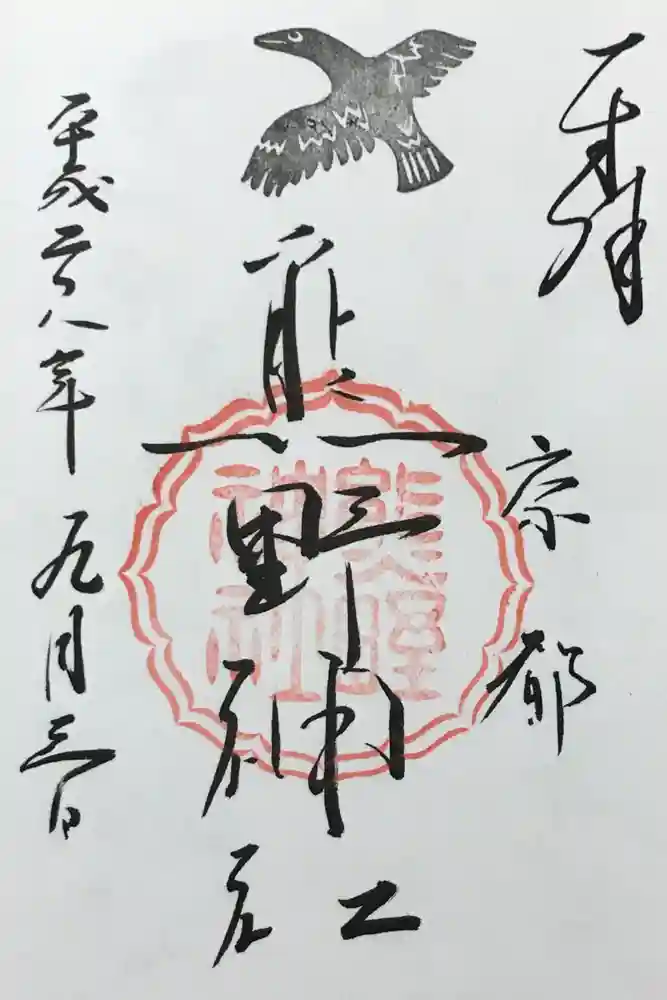 奉拝
京都
熊野神社
平成二十八年九月三日